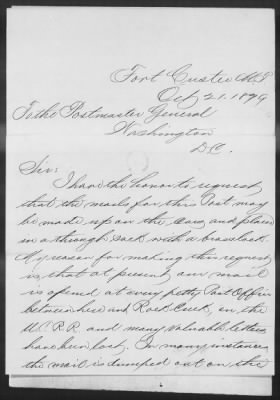 Fort Custer M.T.
Oct 21. 1879
To the Postmaster General
Washington
D.C.
Sir:
I have the honor to request
that the mails for this Post may
be made up on the cars, and placed
in a through sack with a brass lock.
My reason for making this request
is that at present our mail
is opened at every petty Post Office
between here and Rock Creek, on the
U.P.R.R. and many valuable letters
have been lost. In many instances
the mail is dumped out on the